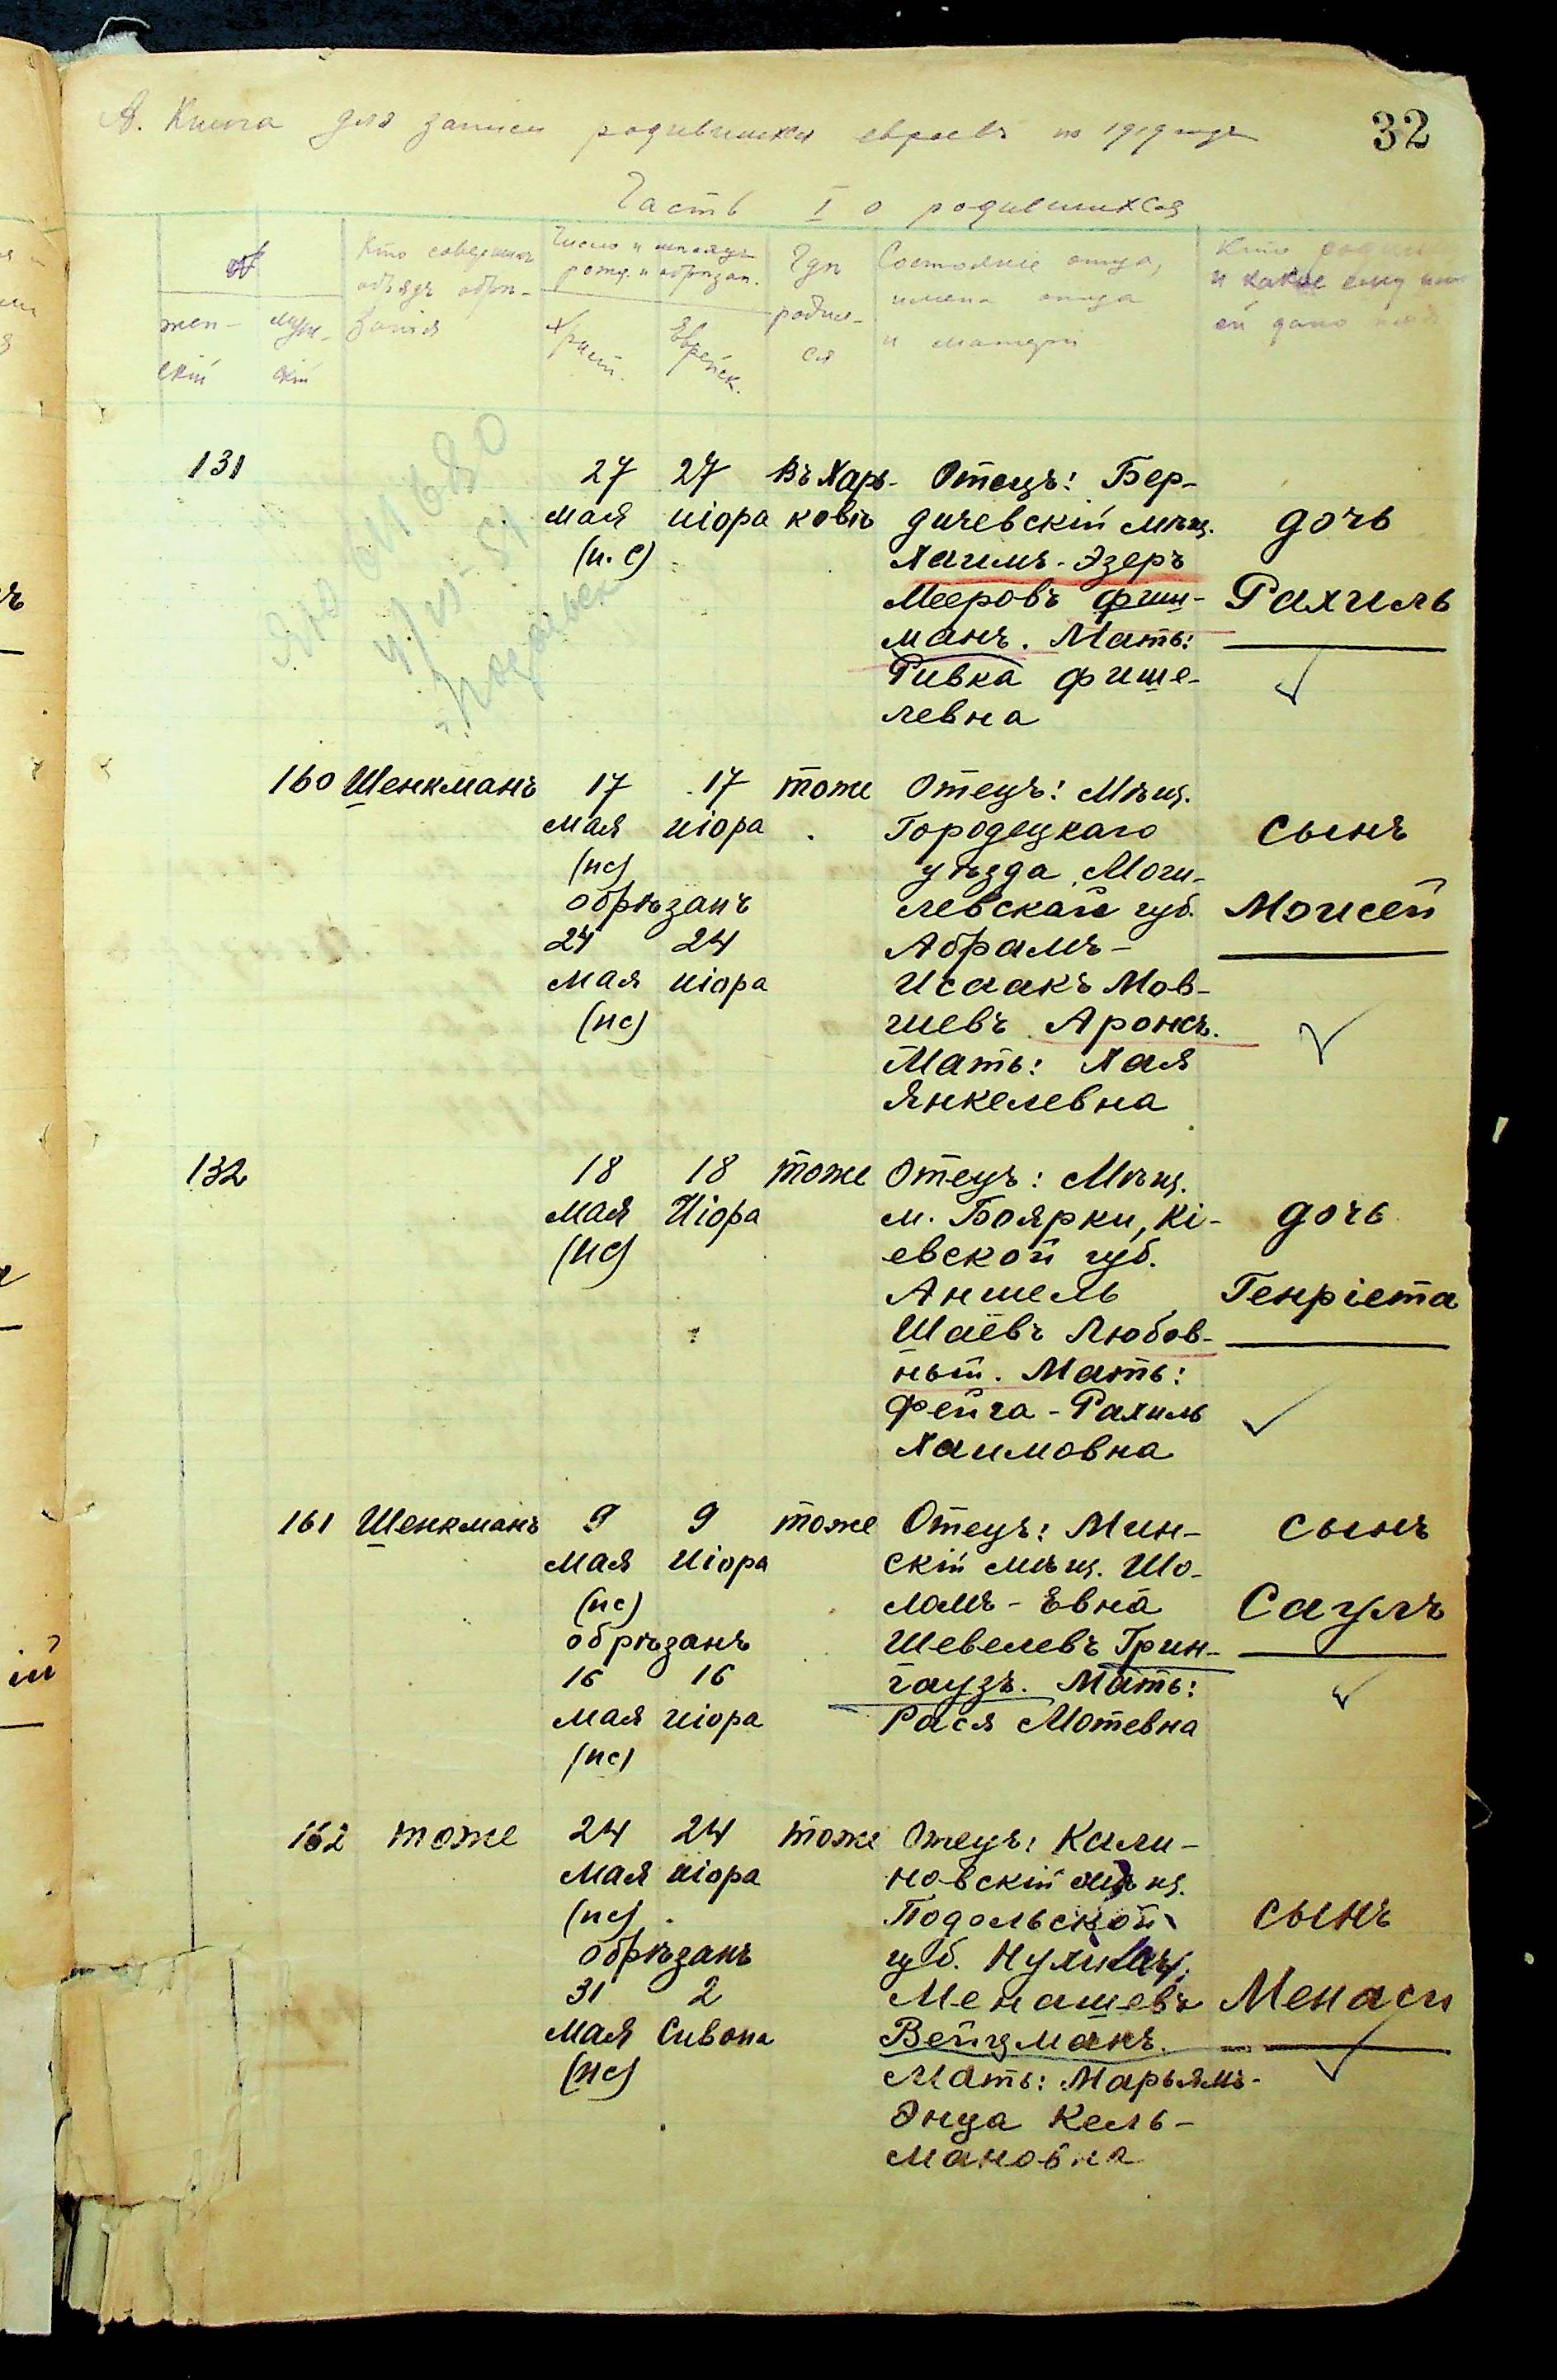 32
А. Книга для записи родившихся евреевъ на 1919 годъ
Часть I о родившихся
№
жен-
скій
муж-
скій
Кто совершилъ
обрядъ обрѣ-
занія
Число и мѣсяцъ
рожд. и обрѣзан.
Христ.
Еврейск.
Гдѣ
родил-
ся
Состояніе отца,
имена отца
и матери
Кто родился
и какое ему или
ей дано имя
131
27
мая
(н. с)
27
иіора
Въ Харь-
ковѣ
Отецъ: Бер-
дичевскій мѣщ.
Хаимъ-Эзеръ
Мееровъ Фиш-
манъ. Мать:
Ривка Фише-
левна
дочь
Рахиль
160
Шенкманъ
17
мая
(нс)
17
иіора
обрѣзанъ
24 24
мая иіора
(нс)
тоже
Отецъ: Мѣщ.
Городецкаго
уѣзда Моги-
левской губ.
Абрамъ-
Исаакъ Мов-
шевъ Аронсъ.
Мать: Хая
Янкелевна
сынъ
Моисей
132
18
мая
(нс)
18
Иіора
тоже
Отецъ: Мѣщ.
м. Боярки, Кі-
евской губ.
Аншель
Шаёвъ Любов-
ный. Мать:
Фейга-Рахиль
Хаимовна
дочь
Генріета
161
Шенкманъ
9
мая
(нс)
9
Иіора
обрѣзанъ
16 16
мая иіора
(нс)
тоже
Отецъ: Мин-
скій мѣщ. Шо-
ломъ-Евна
Шевелевъ Грин-
гаузъ. Мать:
Рася Мотевна
сынъ
Саулъ
162
тоже
24
мая
(нс)
24
иіора
обрѣзанъ
31 2
мая Сивона
(нс)
тоже
Отецъ: Кали-
новскій мѣщ.
Подольской
губ.
Менашевъ
Вейцманъ.
Мать: Марьямъ-
Энца Кель-
мановна
сынъ
Менаси